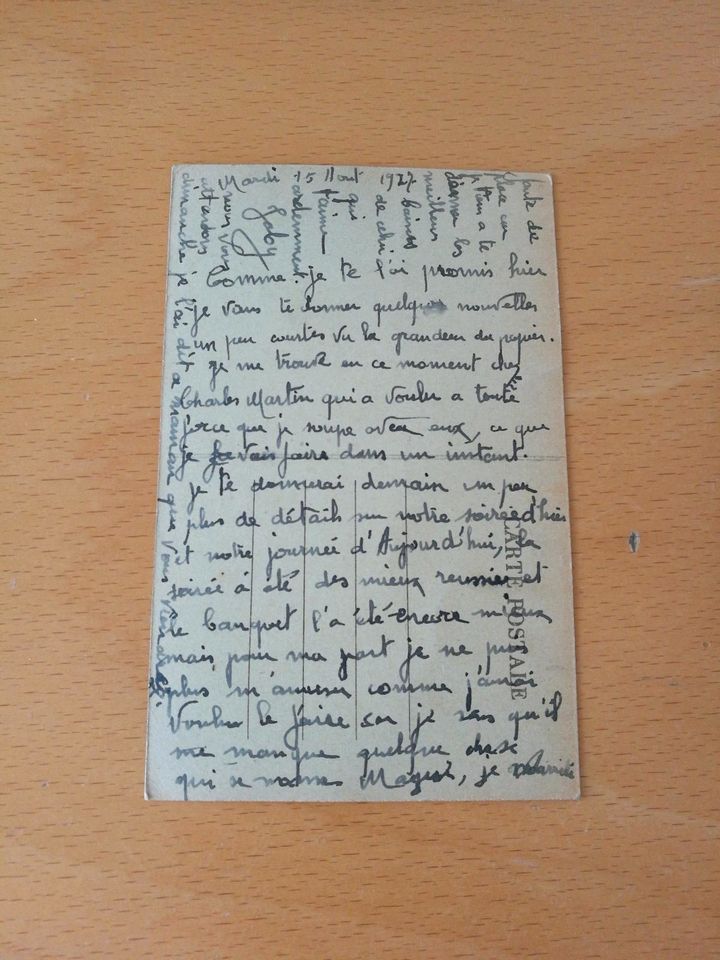 Mardi 15 Aout 1927
Comme je te l'ai promis hier
je vais te donner quelques nouvelles
un peu courtes vu la grandeur du papier.
je me trouve en ce moment chez
Charles Martin qui a voulu a toute
force que je soupe avec eux, ce que
je vais faire dans un instant.
je te donnerai demain un peu
plus de détails sur notre soirée d'hier
et notre journée d'Aujourd'hui, la
soirée à été des mieux reussies et
le banquet l'a été encore mieux
mais pour ma part je ne puis
plus m'amuser comme j'aurai
voulu le faire car je sens qu'il
me manque quelque chose
qui se nomme, je m'arrête
faute de
place car
te
donner les
meilleurs
baisers
de celui
qui
t'aime
ardemment.
Gaby
nous vous
attendons
dimanche je l'ai dit a maman que vous
CARTE POSTALE